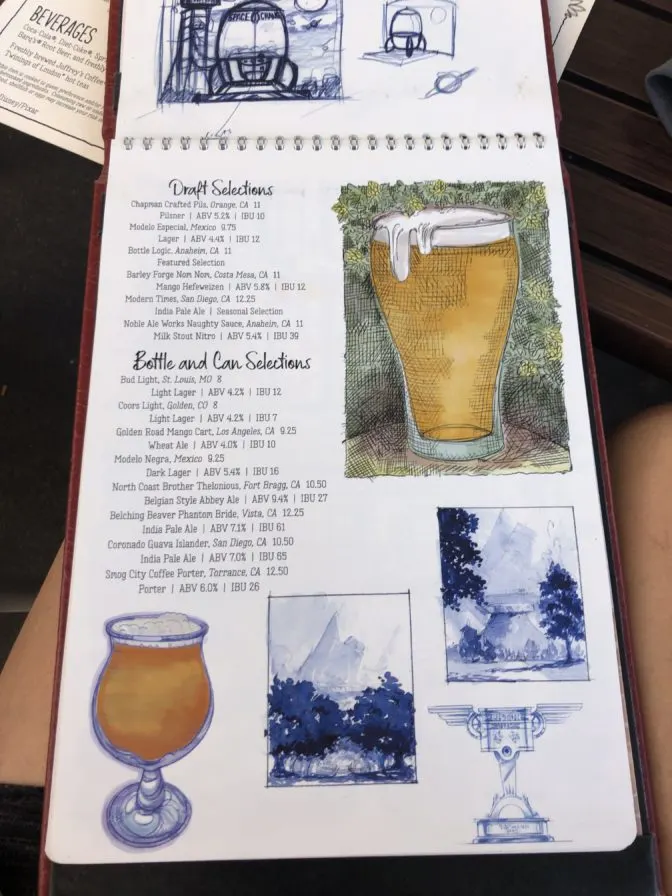 BEVERAGES
Coca-Cola®, Diet-Coke®, Spr
Barq's® Root Beer, and freshly
Freshly brewed Joffrey's Coffee
Twinings of London® hot teas
Disney/Pixar
SPACE
Draft Selections
Chapman Crafted Pils, Orange, CA 11
Pilsner | ABV 5.2% | IBU 10
Modelo Especial, Mexico 9.75
Lager | ABV 4.4% | IBU 12
Bottle Logic, Anaheim, CA 11
Featured Selection
Barley Forge Nom Nom, Costa Mesa, CA 11
Mango Hefeweizen | ABV 5.8% | IBU 12
Modern Times, San Diego, CA 12.25
India Pale Ale | Seasonal Selection
Noble Ale Works Naughty Sauce, Anaheim, CA 11
Milk Stout Nitro | ABV 5.4% | IBU 39
Bottle and Can Selections
Bud Light, St. Louis, MO 8
Light Lager | ABV 4.2% | IBU 12
Coors Light, Golden, CO 8
Light Lager | ABV 4.2% | IBU 7
Golden Road Mango Cart, Los Angeles, CA 9.25
Wheat Ale | ABV 4.0% | IBU 10
Modelo Negra, Mexico 9.25
Dark Lager | ABV 5.4% | IBU 16
North Coast Brother Thelonious, Fort Bragg, CA 10.50
Belgian Style Abbey Ale | ABV 9.4% | IBU 27
Belching Beaver Phantom Bride, Vista, CA 12.25
India Pale Ale | ABV 7.1% | IBU 61
Coronado Guava Islander, San Diego, CA 10.50
India Pale Ale | ABV 7.0% | IBU 65
Smog City Coffee Porter, Torrance, CA 12.50
Porter | ABV 6.0% | IBU 26